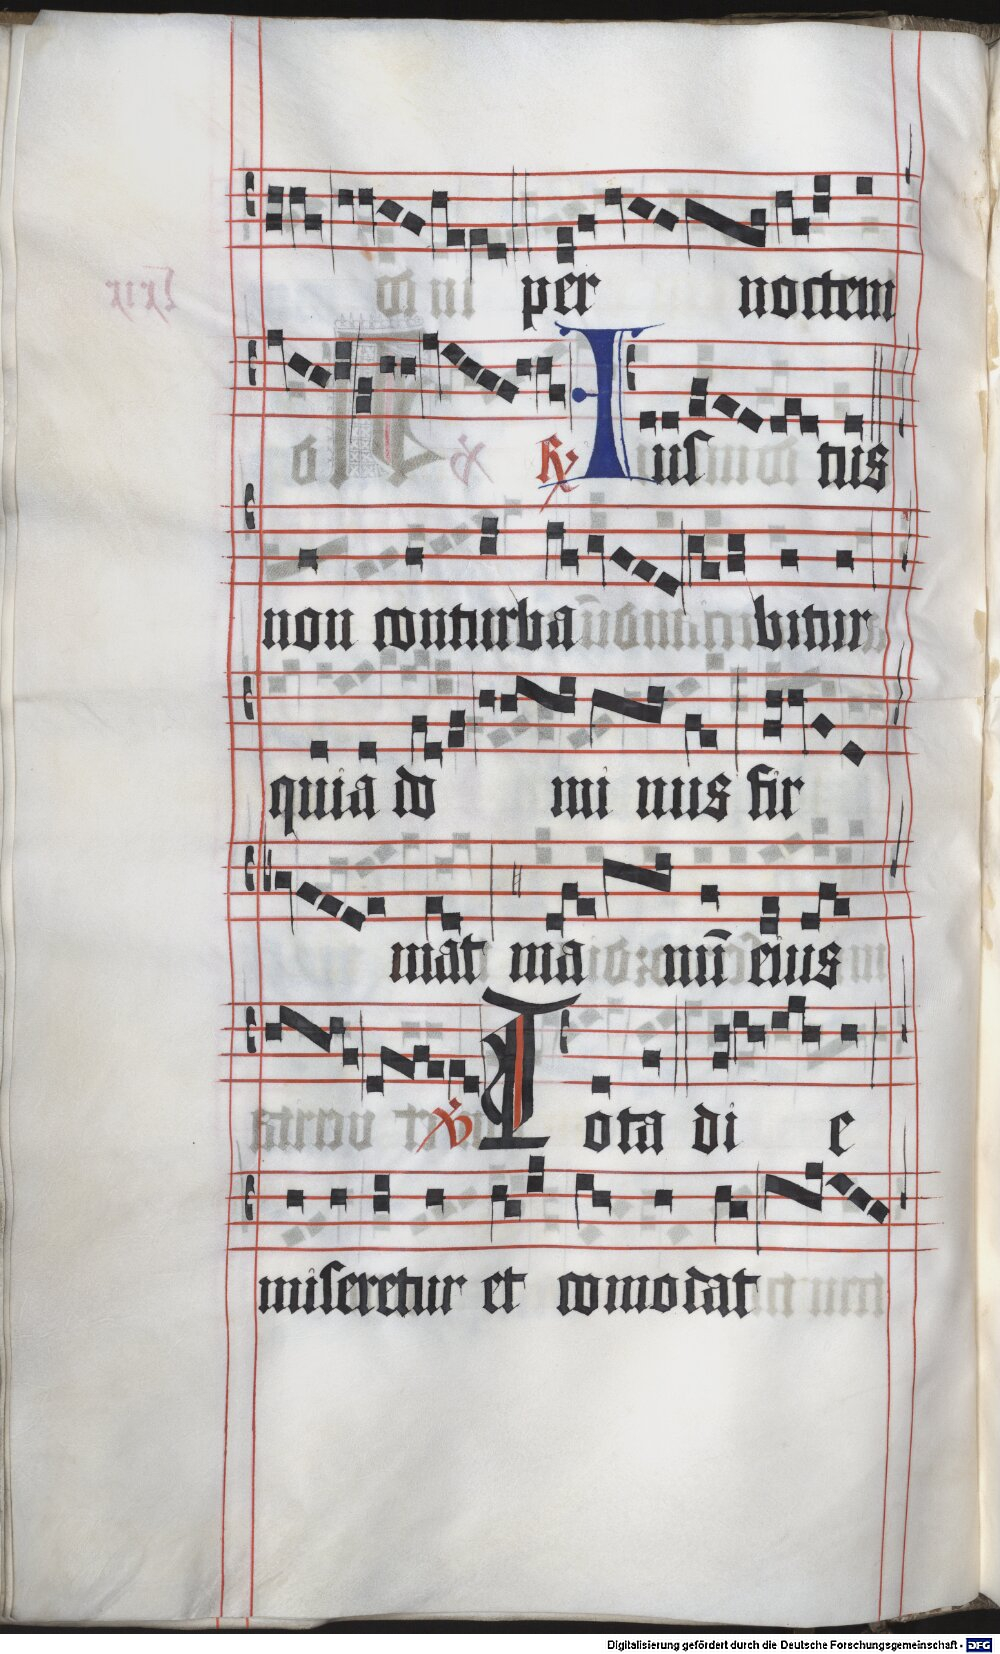 per noctem
℟ Iustus
non conturbabitur
quia dominus fir
mat manū eius
℣ Tota die
miseretur et comodat
Digitalisierung gefördert durch die Deutsche Forschungsgemeinschaft - DFG